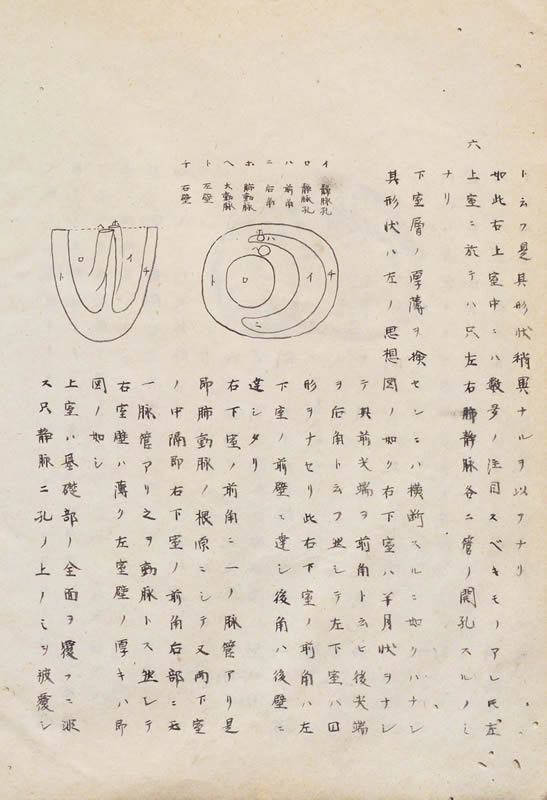 ト云フ是其形状稍異ナルヲ以テナリ
如此右上室中ニハ数多ノ注目スベキモノアレ𪜈左
六 上室ニ於テハ只左右肺静脉各二管ノ開孔スルノミ
ナリ
下室層ノ厚薄ヲ検センニハ横断スルニ如クハナシ
其形状ハ左ノ思想図ノ如ク右下室ハ半月状ヲナシ
テ其前尖端ヲ前角ト云ヒ後尖端
ヲ后角ト云フ然シテ左下室ハ円
形ヲナセリ此右下室ノ前角ハ左
下室ノ前壁ニ達シ後角ハ後壁ニ
達シタリ
右下室ノ前角ニ一ノ脉管アリ是
即肺動脉ノ根原ニシテ又両下室
ノ中隔即右下室ノ前角右部ニ亦
一脉管アリ之ヲ動脉トス然シテ
右室壁ハ薄ク左室壁ノ厚キハ即
図ノ如シ
上室ハ基礎部ノ全面ヲ覆フニ非
ス只静脉二孔ノ上ノミヲ被覆シ
イ 静脉孔
ロ 静脉孔
ハ 前角
ニ 后角
ホ 肺動脉
ヘ 大動脉
ト 左壁
チ 右壁
ホ
ハ
ヘ
ロ
イ
チ
ニ
ホ
ト
ロ
イ
チ